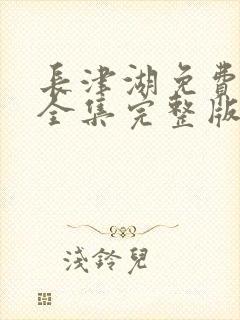 長津湖免費
全集完整版
淺鈴兒